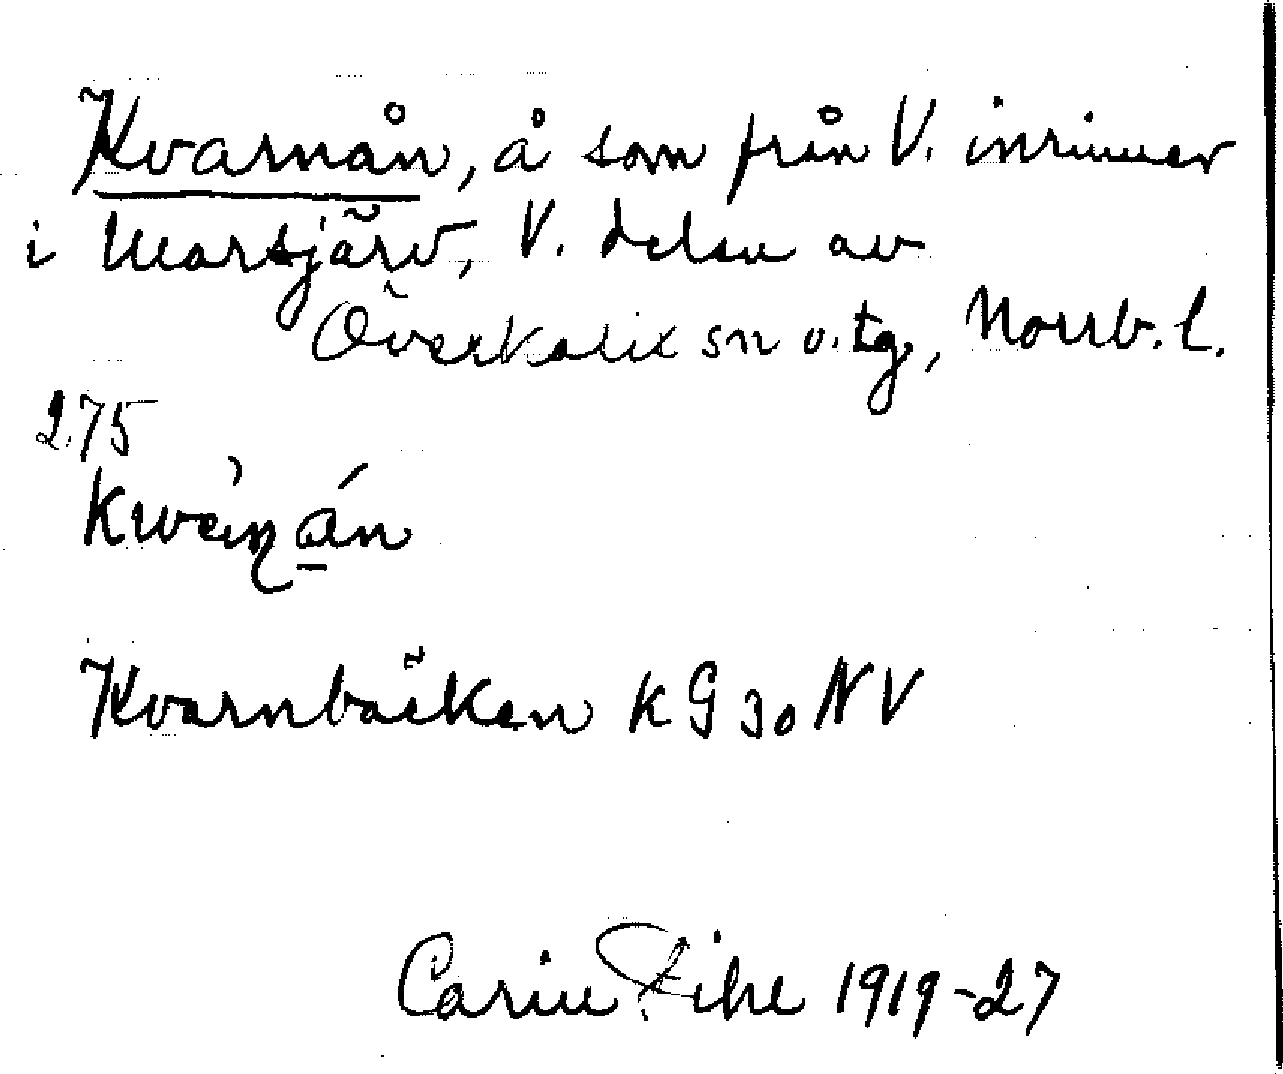 Kvarnån, å som från V. inrinner
i Marsjärv, V. delen av
Överkalix sn o. tg, Norrb. l.
275
Kvarnbäcken KG 30 NV
Carin Pihl 1919-27